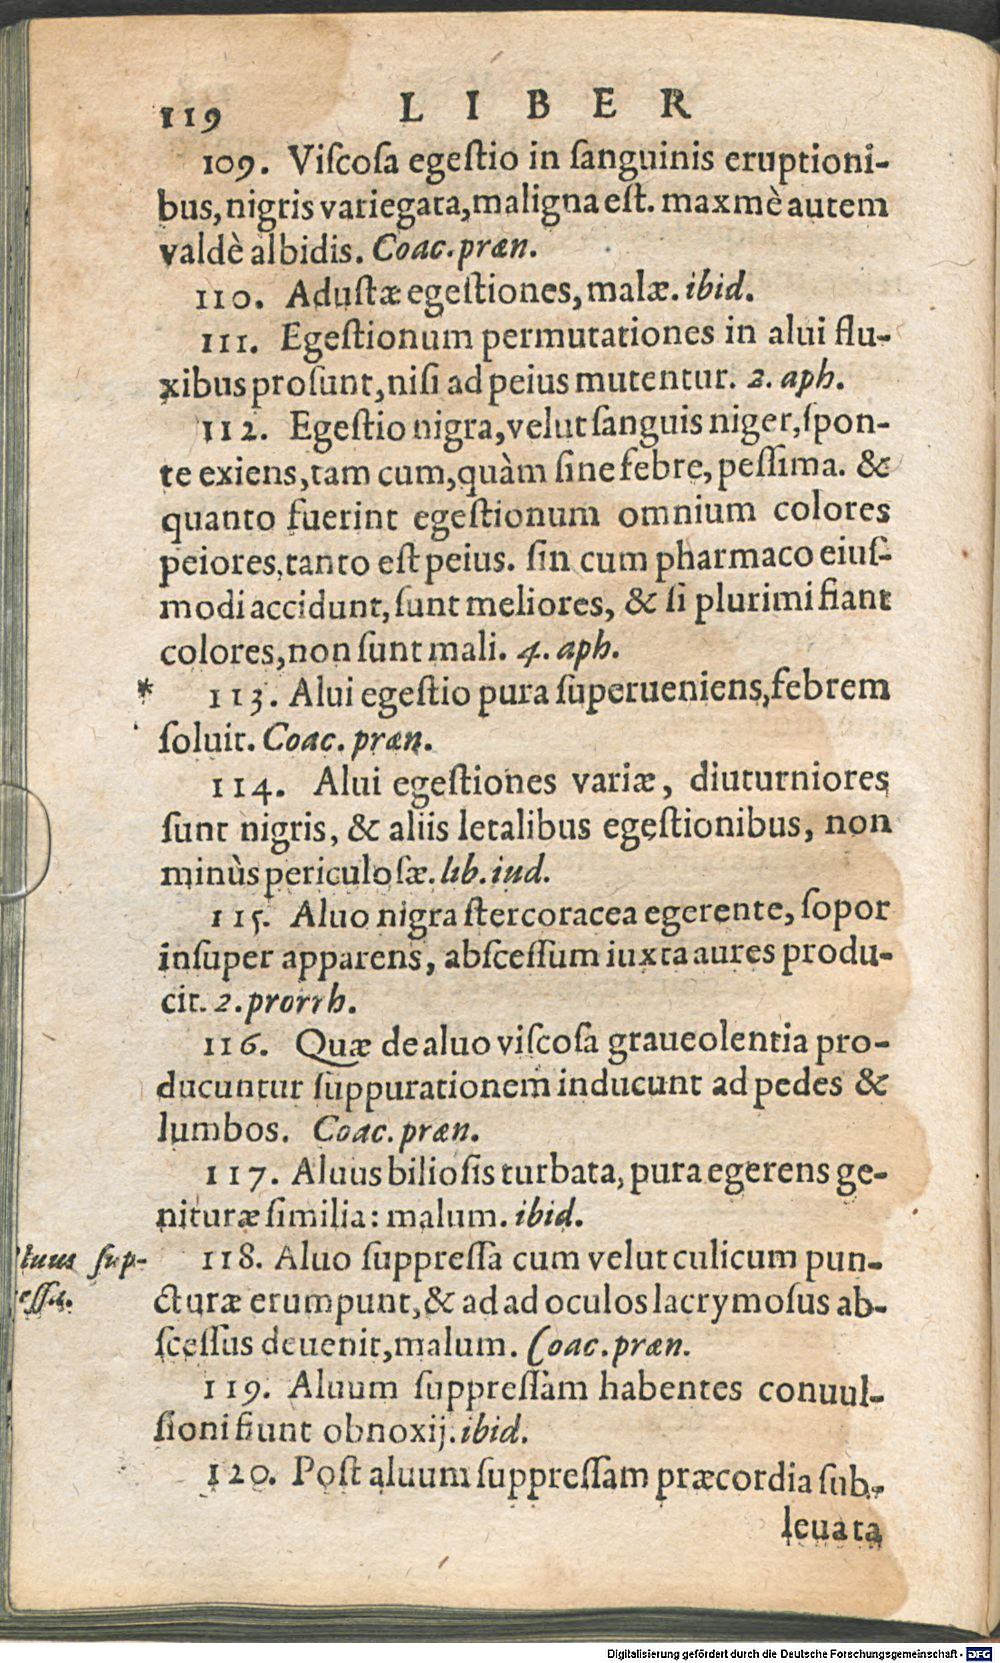 119 LIBER
109. Viſcoſa egeſtio in ſanguinis eruptioni-
bus, nigris variegata, maligna eſt. maxmè autem
valdè albidis. Coac. præn.
110. Aduſtæ egeſtiones, malæ. ibid.
111. Egeſtionum permutationes in alui flu-
xibus proſunt, niſi ad peius mutentur. 2. aph.
112. Egeſtio nigra, velut ſanguis niger, ſpon-
te exiens, tam cum, quàm ſine febre, peſſima. &
quanto fuerint egeſtionum omnium colores
peiores, tanto eſt peius. ſin cum pharmaco eiuſ-
modi accidunt, ſunt meliores, & ſi plurimi fiant
colores, non ſunt mali. 4. aph.
* 113. Alui egeſtio pura ſuperueniens, febrem
ſoluit. Coac. præn.
114. Alui egeſtiones variæ, diuturniores
ſunt nigris, & aliis letalibus egeſtionibus, non
minùs periculoſæ. lib. iud.
115. Aluo nigra ſtercoracea egerente, ſopor
inſuper apparens, abſceſſum iuxta aures produ-
cit. 2. prorrh.
116. Quæ de aluo viſcoſa graueolentia pro-
ducuntur ſuppurationem inducunt ad pedes &
lumbos. Coac. præn.
117. Aluus bilioſis turbata, pura egerens ge-
nituræ ſimilia: malum. ibid.
luus ſup-
eſſa.
118. Aluo ſuppreſſa cum velut culicum pun-
cturæ erumpunt, & ad ad oculos lacrymoſus ab-
ſceſſus deuenit, malum. Coac. præn.
119. Aluum ſuppreſſam habentes conuul-
ſioni fiunt obnoxij. ibid.
120. Poſt aluum ſuppreſſam præcordia ſub-
leuata
Digitalisierung gefördert durch die Deutsche Forschungsgemeinschaft - DFG